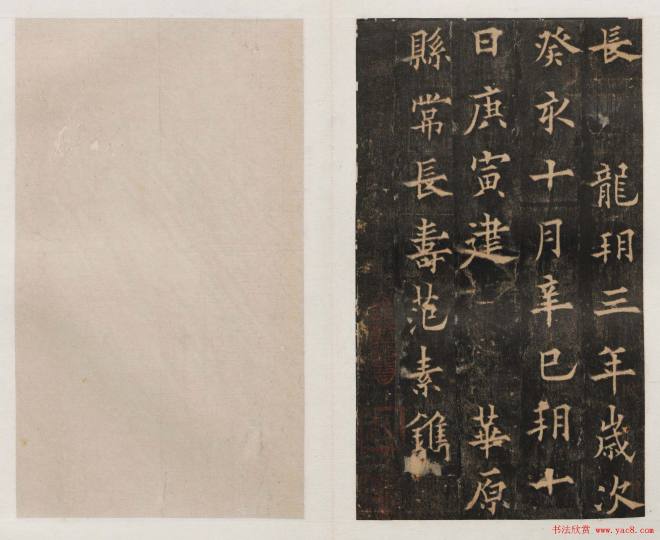 長 龍朔三年歲次
癸亥十月辛巳朔十
日庚寅建 華原
縣常長壽范素鐫
书法欣赏
www.yac8.com